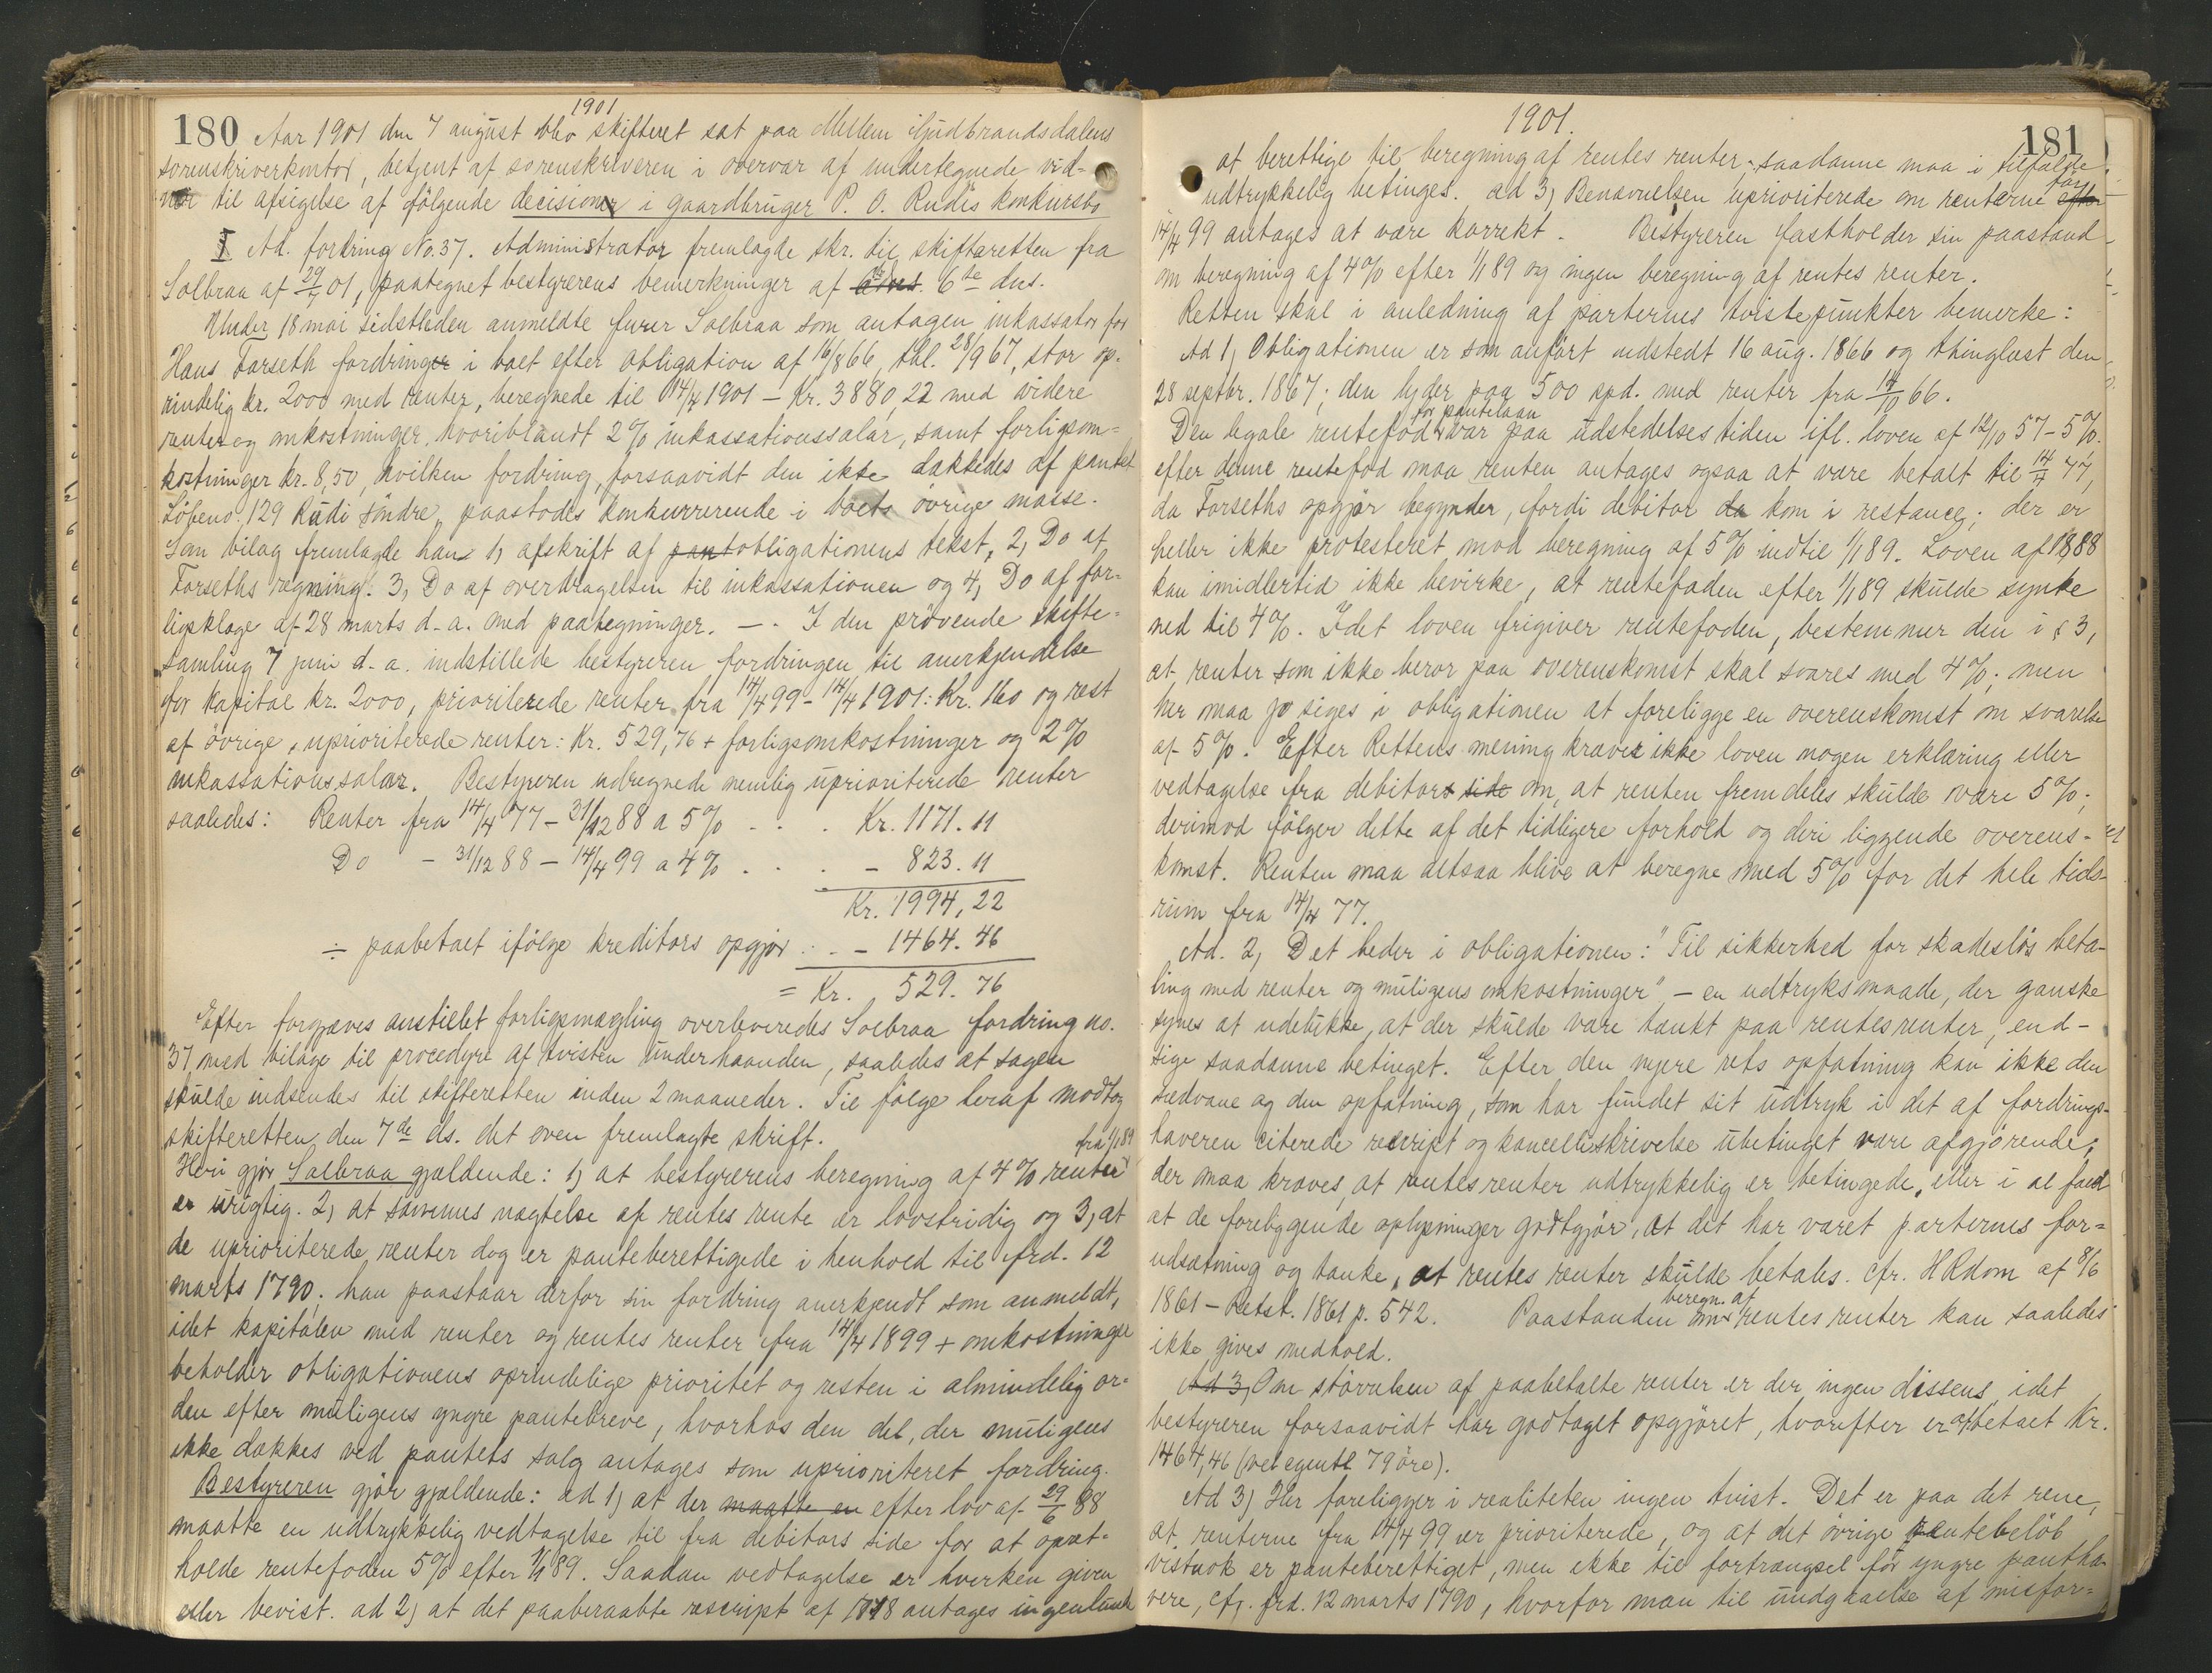 1901
180 Aar 1901 den 7 august blev skifteret sat paa Mellem Gudbrandsdalens
sorenskriverkontor, betjent af sorenskriveren i overvær af undertegnede vid-
ner til afsigelse af følgende decisioner i gaardbruger P. O. Rudis konkursbo
I Ad. fordring No. 37. Administrator fremlagde skr. til skifteretten fra
Solbraa af 29/7 01, paategnet bestyrerens bemerkninger af 6te dns.
Under 18 mai sidstleden anmeldte furer Solbraa som antagen inkassator for
Hans Forseth fordringer i boet efter obligation af 16/8 66, thl. 28/9 67, stor op-
rindelig kr. 2000 med renter, beregnede til 14/4 1901 – Kr. 3880,22 med videre
renter og omkostninger, hvoriblandt 2% inkassationssalær, samt forligsom-
kostninger kr. 8,50, hvilken fordring, forsaavidt den ikke dækkedes af pantet
Løbeno. 129 Rudi søndre, paastodes konkurrerende i boets øvrige masse.
Som bilag fremlagde han 1, afskrift af pantobligationens tekst, 2, Do af
Forseths regning. 3, Do af overdragelsen til inkassationen og 4, Do af for-
ligsklage af 28 marts d. a. med paategninger. — I den prøvende skifte-
samling 7 juni d. a. indstillede bestyreren fordringen til anerkjendelse
for kapital kr. 2000, prioriterede renter fra 14/4 99 – 14/4 1901: Kr. 160 og rest
af øvrige, uprioriterede renter: Kr. 529,76 + forligsomkostninger og 2%
inkassationssalær. Bestyreren udregnede nemlig uprioriterede renter
saaledes: Renter fra 14/4 77 – 31/12 88 a 5% . . . Kr. 1171.11
Do – 31/12 88 – 14/4 99 a 4% . . . – 823.11
Kr. 1994,22
÷ paabetalt ifølge kreditors opgjør . . – 1464.46
= Kr. 529.76
Efter forgjæves anstillet forligsmægling overleveredes Solbraa fordring no.
37 med bilage til procedyre af tvisten underhaanden, saaledes at sagen
skulde indsendes til skifteretten inden 2 maaneder. Til følge heraf modtog
skifteretten den 7de ds. det oven fremlagte skrift.
fra 1/1 89
Heri gjør Solbraa gjældende: 1) at bestyrerens beregning af 4% renter
er urigtig. 2, at sammes nægtelse af rentes rente er lovstridig og 3, at
de uprioriterede renter dog er panteberettigede i henhold til frd. 12
marts 1790; han paastaar derfor sin fordring anerkjendt som anmeldt,
idet kapitalen med renter og rentes renter fra 14/4 1899 + omkostninger
beholder obligationens oprindelige prioritet og resten i almindelig or-
den efter muligens yngre pantebreve, hvorhos den del, der muligens
ikke dækkes ved pantets salg antages som uprioriteret fordring.
Bestyreren gjør gjældende: ad 1) at der maatte en efter lov af 29/6 88
maatte en udtrykkelig vedtagelse til fra debitors side for at opret-
holde rentefoden 5% efter 1/1 89. Saadan vedtagelse er hverken given
eller bevist. ad 2) at det paaberaabte rescript af 1718 antages ingenlunde
1901.
181
at berettige til beregning af rentes renter; saadanne maa i tilfælde
udtrykkelig betinges. ad 3) Benævnelsen uprioriterede om renterne efter
før
14/4 99 antages at være korrekt. Bestyreren fastholder sin paastand
om beregning af 4% efter 1/1 89 og ingen beregning af rentes renter.
Retten skal i anledning af parternes tvistepunkter bemerke:
Ad 1, Obligationen er som anført udstedt 16 aug. 1866 og thinglæst den
28 septbr. 1867; den lyder paa 500 spd. med renter fra 14/10 66.
for pantelaan
Den legale rentefod var paa udstedelsestiden ifl. loven af 12/10 57 – 5%.
efter denne rentefod maa renten antages ogsaa at være betalt til 14/4 77,
da Forseths opgjør begynder, fordi debitor da kom i restance; der er
heller ikke protesteret mod beregning af 5% indtil 1/1 89. Loven af 1888
kan imidlertid ikke bevirke, at rentefoden efter 1/1 89 skulde synke
ned til 4%. Idet loven frigiver rentefoden, bestemmer den i § 3,
at renter som ikke beror paa overenskomst skal svares med 4%; men
her maa jo siges i obligationen at foreligge en overenskomst om svarelse
af 5%. Efter Rettens mening kræver ikke loven nogen erklæring eller
vedtagelse fra debitors side om, at renten fremdeles skulde være 5%;
derimod følger dette af det tidligere forhold og deri liggende overens-
komst. Renten maa altsaa blive at beregne med 5% for det hele tids-
rum fra 14/4 77.
Ad. 2, Det heder i obligationen: "Til sikkerhed for skadesløs beta-
ling med renter og muligens omkostninger" – en udtryksmaade, der ganske
synes at udelukke, at der skulde være tænkt paa rentesrenter, end-
sige saadanne betinget. Efter den nyere rets opfatning kan ikke den
sedvane og den opfatning, som har fundet sit udtryk i det af fordrings-
haveren citerede rescript og kancelliskrivelse ubetinget være afgjørende;
der maa kræves, at rentesrenter udtrykkelig er betingede, eller i al fald
at de foreliggende oplysninger godtgjør, at det har været parternes for-
udsætning og tanke, at rentes renter skulde betales. cfr. HRdom af 8/6
1861 – Retst. 1861 p. 542. Paastanden om rentes renter kan saaledes
beregn. af
ikke gives medhold.
Ad 3, Om størrelsen af paabetalte renter er der ingen dissens, idet
bestyreren forsaavidt har godtaget opgjøret, hvorefter er afbetalt Kr.
1464,46 (vel egentl. 79 øre).
Ad 3) Her foreligger i realiteten ingen tvist. Det er paa det rene,
at renterne fra 14/4 99 er prioriterede, og at det øvrige rentebeløb
vistnok er panteberettiget, men ikke til fortrængsel for yngre pantha-
vere, cfr. frd. 12 marts 1790, hvorfor man til undgaaelse af misfor-